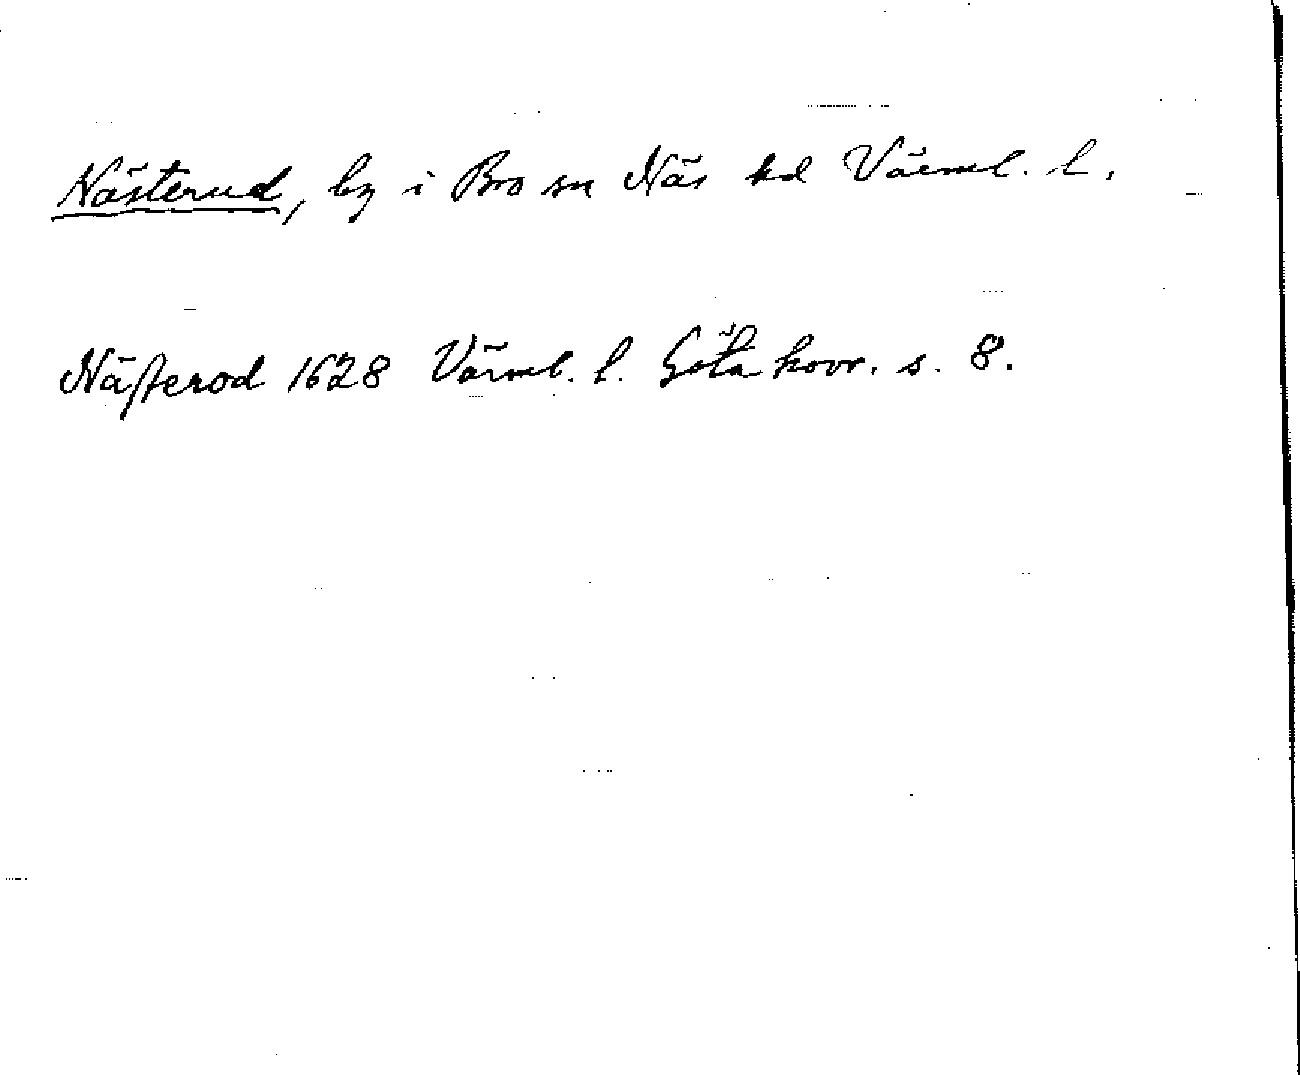 Nästerud, by i Bro sn Näs hd Värml. l.
Näſterod 1628 Värml. l. Göta hovr. s. 8.